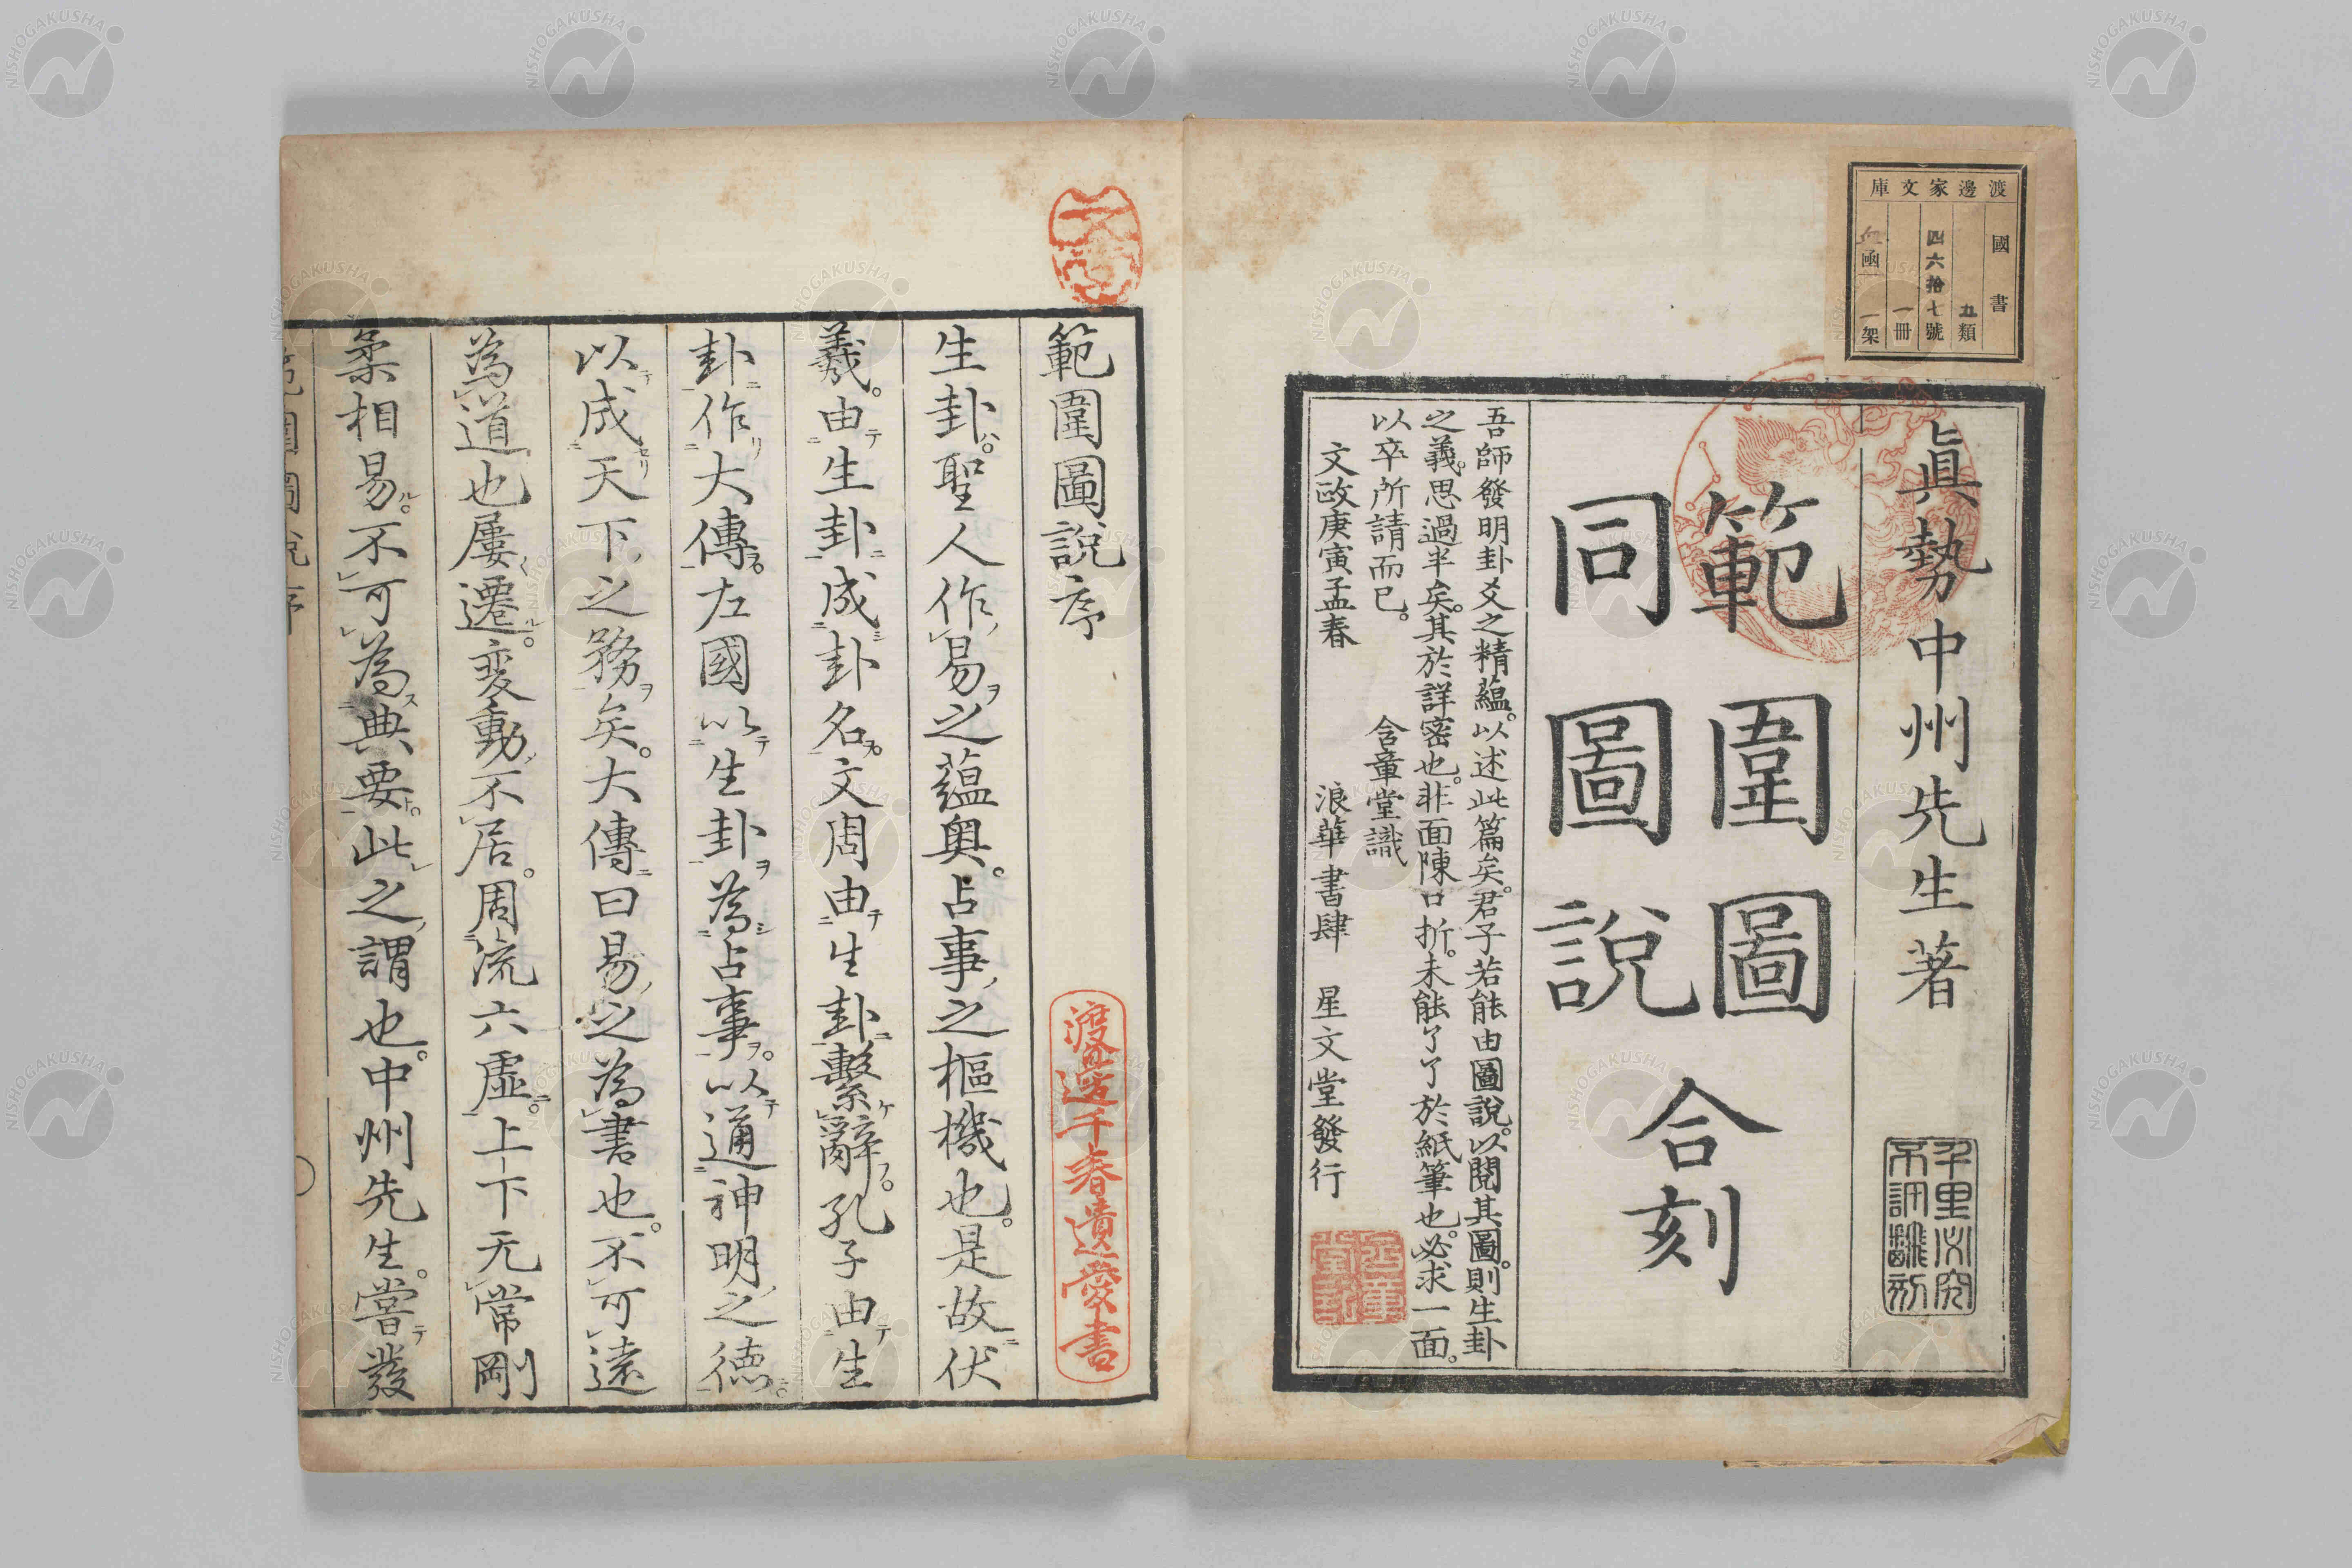 渡邊家文庫
國書
五類
四六拾七號
一冊
函一架
眞勢中州先生著
千里必究
不許翻刻
範圍圖
同圖說
合刻
吾師發明卦爻之精蘊。以述此篇矣。君子若能由圖說。以閱其圖。則生卦
之義。思過半矣。其於詳密也。非面陳口折。未能了了於紙筆也。必求一面。
以卒所請而已。
含章堂識
文政庚寅孟春
浪華書肆 星文堂發行
範圍圖說序
渡邊千春遺愛書
生卦ハ。聖人作易ヲ之蘊奧。占事ノ之樞機也。是故ニ伏
羲。由テ生卦ニ成シ卦名ヲ。文周由テ生卦ニ繫ケ辭ヲ。孔子由テ生
卦ニ作リ大傳ヲ。左國以テ生卦ヲ為シ占事ヲ。以テ通神明ノ之德ニ。
以テ成セリ天下ノ之務ヲ矣。大傳ニ曰易ノ之為書也。不可遠
為道也屢〱遷ル。変動ノ不居。周流六虛ニ。上下无常剛
柔相易ル。不可為ス典要ト。此レ之ノ謂也。中州先生。嘗テ發
範圍圖說序
NISHOGAKUSHA